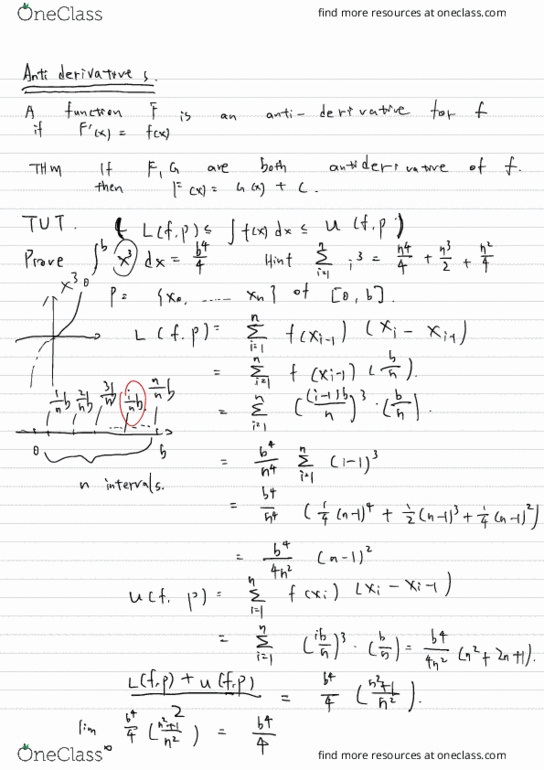 OneClass find more resources at oneclass.com
Anti derivatives.
A function F is an anti-derivative for f
if F'(x) = f(x)
THM If F, G are both antiderivative of f.
then F(x) = G(x) + C.
TUT. ( L(f,p) ≤ ∫ f(x) dx ≤ U(f,p)
Prove ∫₀ᵇ x³ dx = b⁴/4 Hint Σᵢ₌₁ⁿ i³ = n⁴/4 + n³/2 + n²/4
x³
P = {x₀, ..... xₙ} of [0, b].
L(f,p) = Σᵢ₌₁ⁿ f(xᵢ₋₁) (xᵢ - xᵢ₋₁)
= Σᵢ₌₁ⁿ f(xᵢ₋₁) (b/n).
1/n b 2/n b 3/n i/n b n/n b
= Σᵢ₌₁ⁿ ((i-1)b/n)³ · (b/n).
0 b
= b⁴/n⁴ Σᵢ₌₁ⁿ (i-1)³
n intervals.
= b⁴/n⁴ (1/4 (n-1)⁴ + 1/2 (n-1)³ + 1/4 (n-1)²)
= b⁴/4n² (n-1)²
U(f, p) = Σᵢ₌₁ⁿ f(xᵢ) (xᵢ - xᵢ₋₁)
= Σᵢ₌₁ⁿ (ib/n)³ · (b/n) = b⁴/4n² (n²+2n+1).
L(f,p) + U(f,p) / 2 = b⁴/4 (n²+1/n²).
lim ∞ b⁴/4 (n²+1/n²) = b⁴/4
OneClass find more resources at oneclass.com